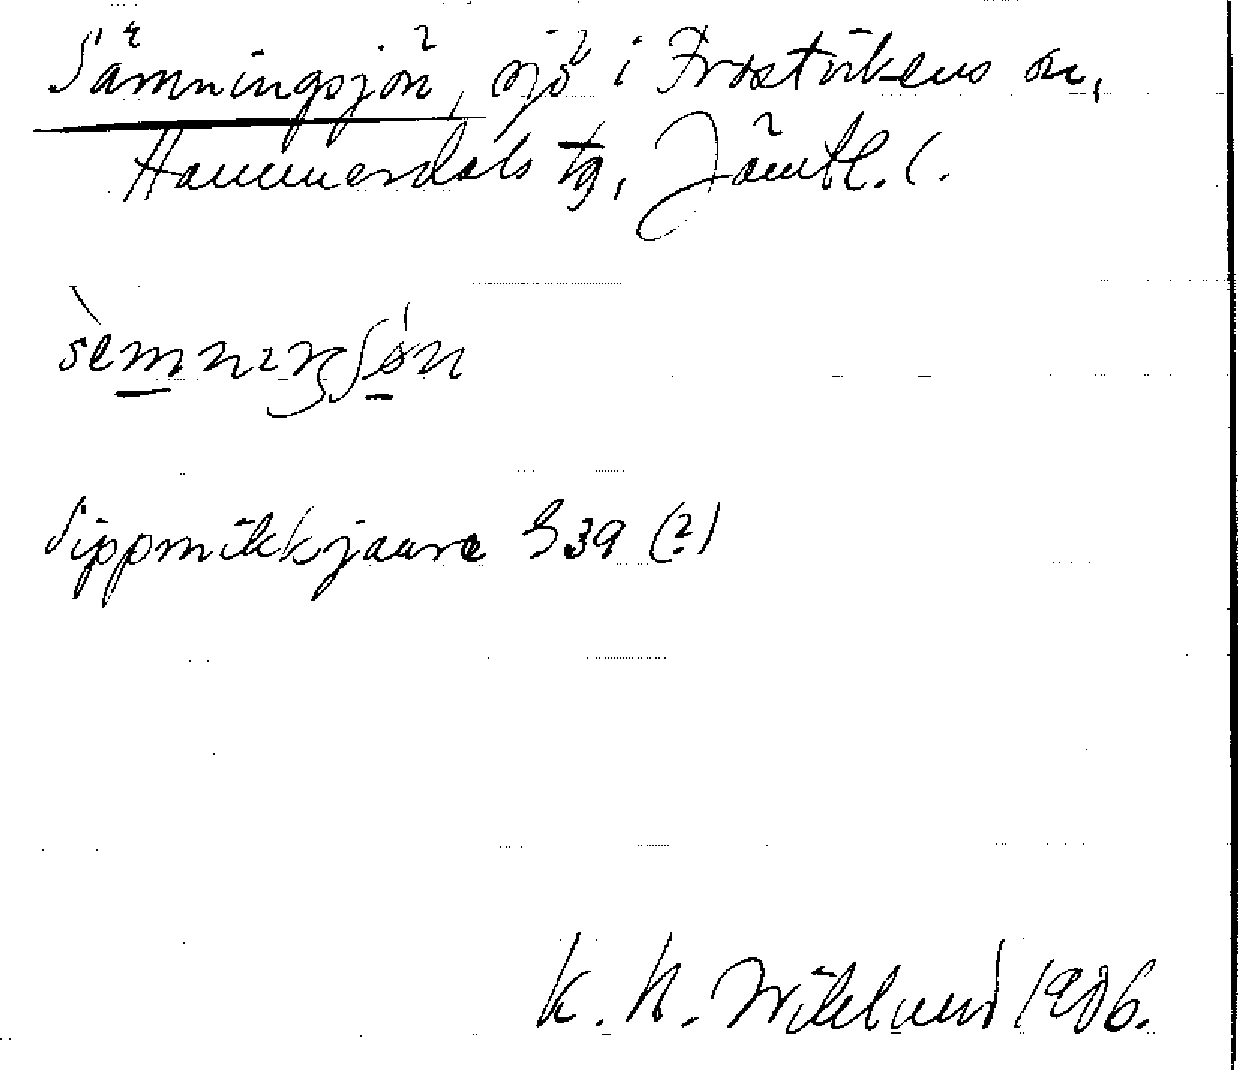 Sämningsjön, sjö i Frostvikens sn,
Hammerdals tg, Jämtl. l.
sèmnıŋʃøn
Sippmikkjaure S39 (?)
K. B. Wiklund 1906.